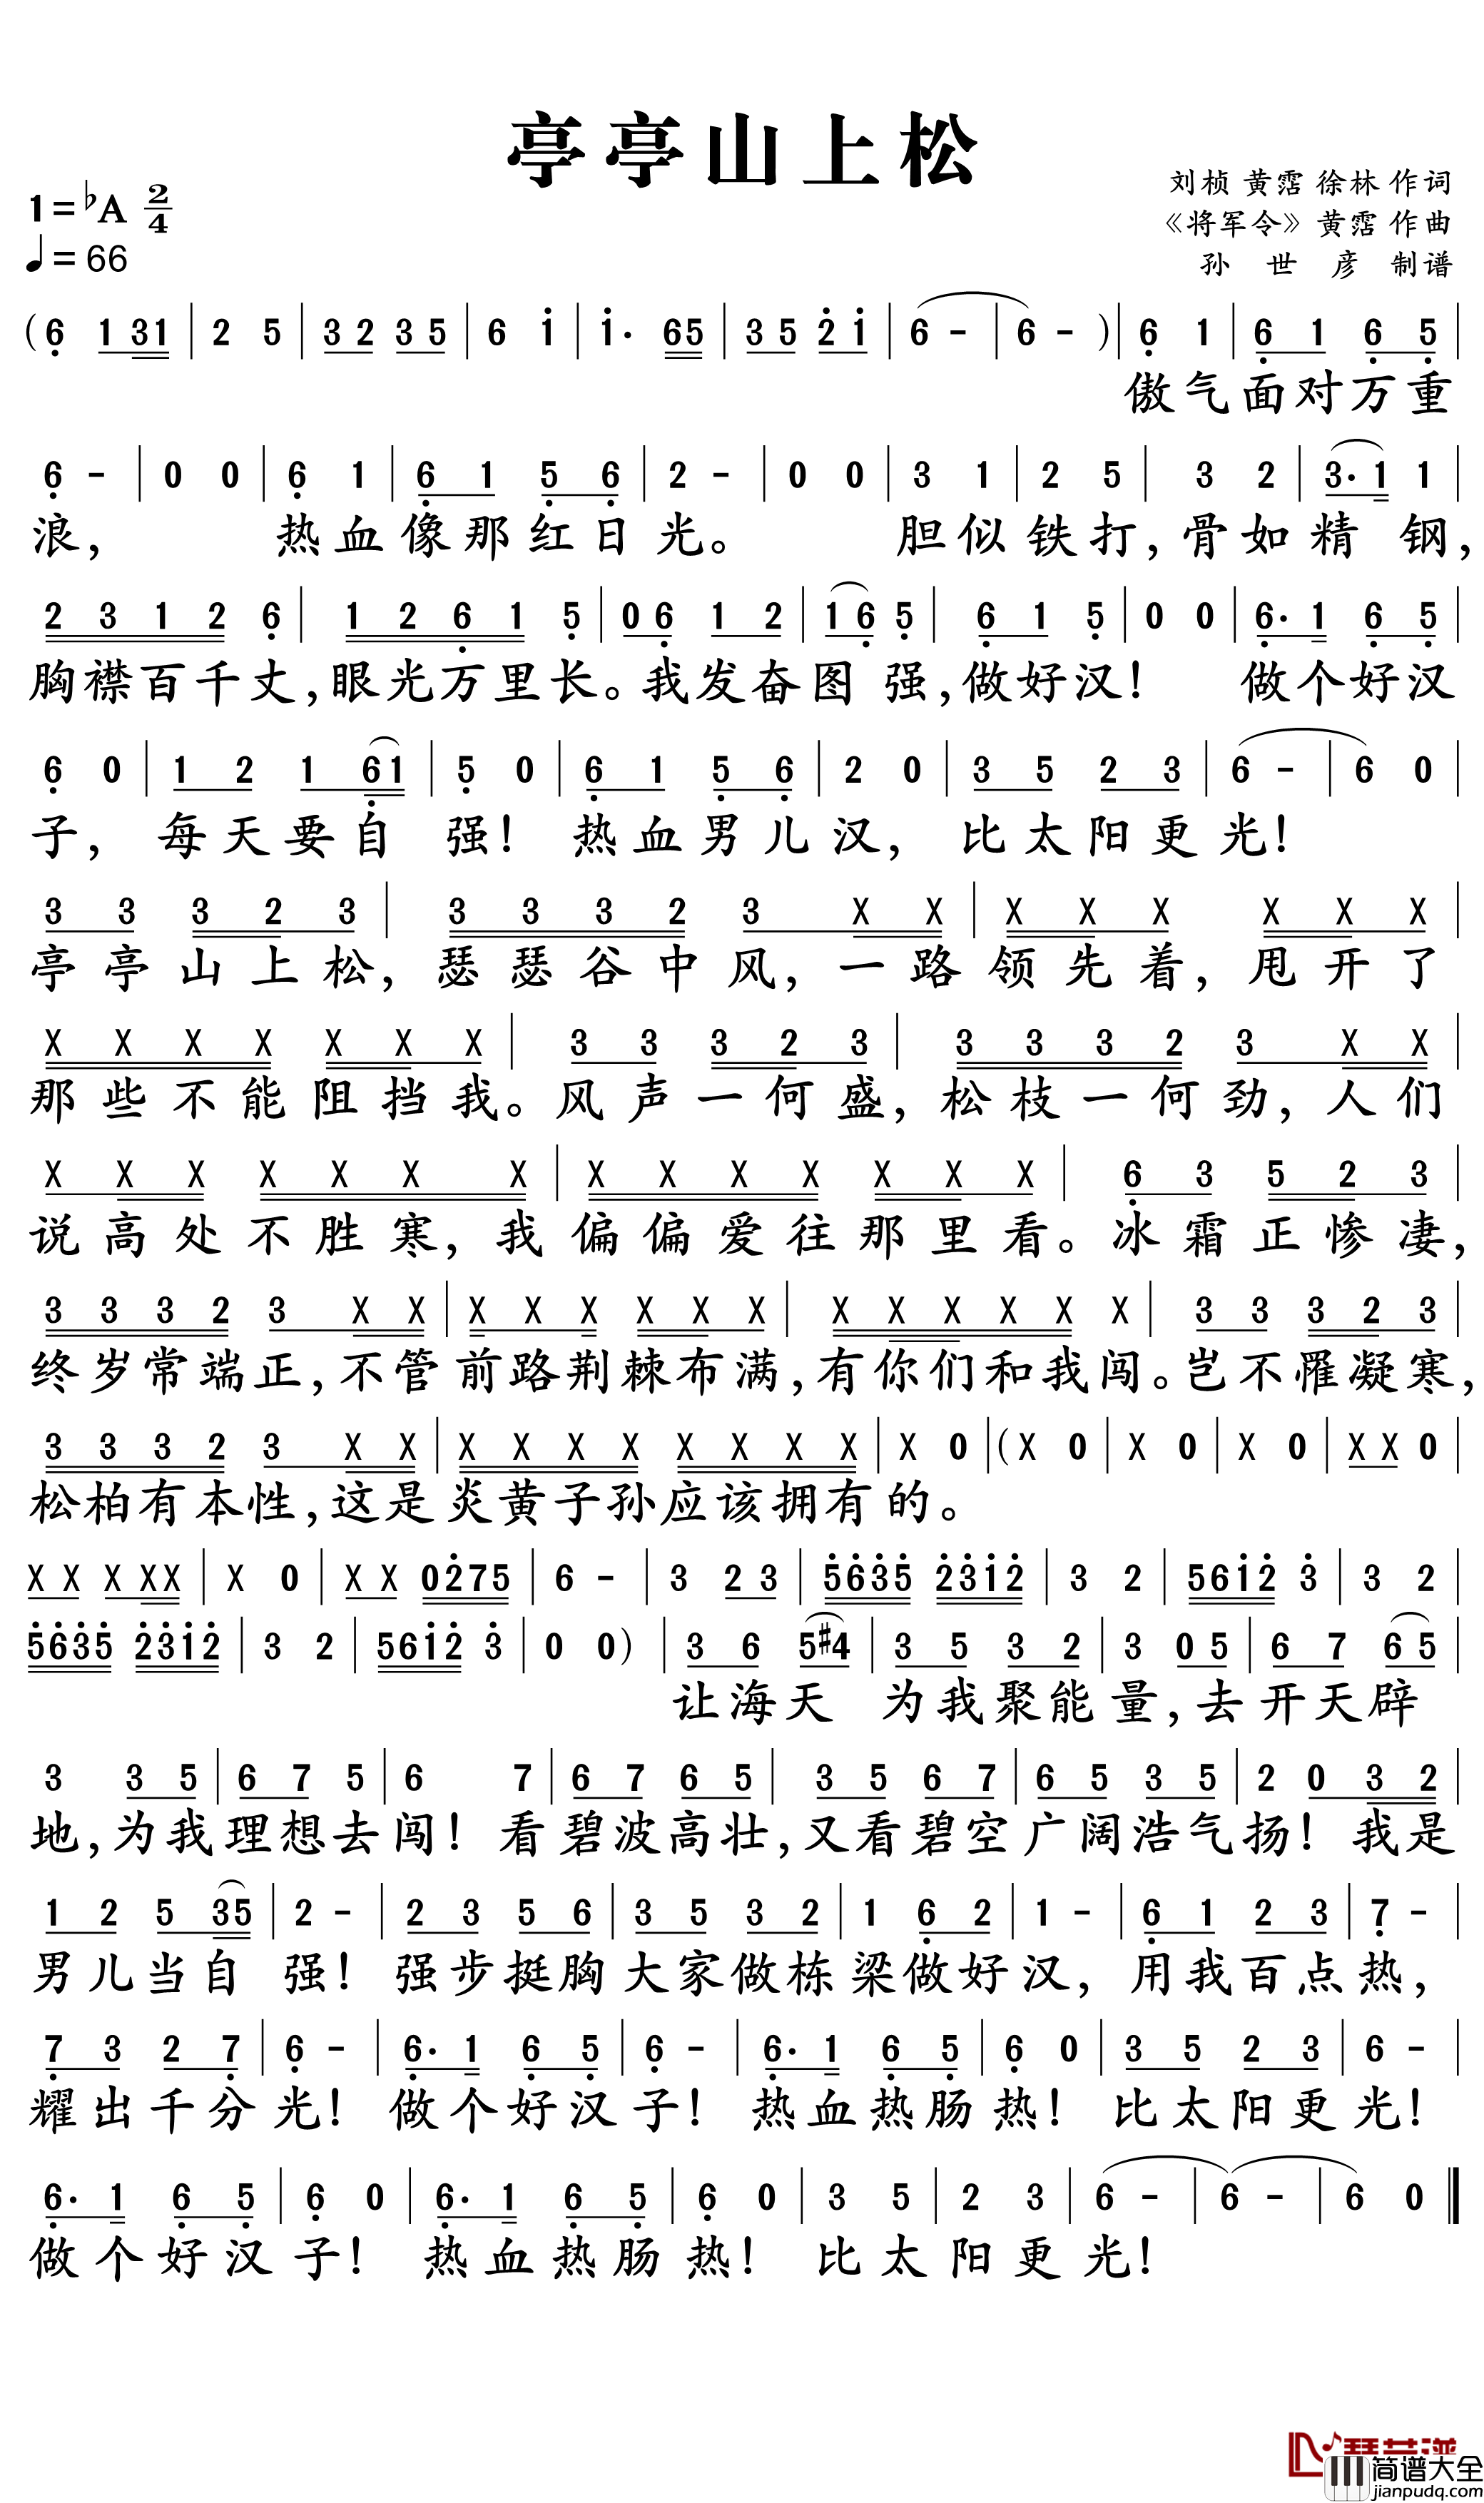 亭亭山上松
1=♭A 2/4
♩=66
刘桢 黄霑 徐林 作词
《将军令》 黄霑 作曲
孙 世 彦 制谱
( 6 1 3 1 | 2 5 | 3 2 3 5 | 6 i | i· 6 5 | 3 5 2 i | 6 - | 6 - ) | 6 1 | 6 1 6 5 |
傲气面对万重
6 - | 0 0 | 6 1 | 6 1 5 6 | 2 - | 0 0 | 3 1 | 2 5 | 3 2 | 3· 1 1 |
浪, 热血像那红日光。 胆似铁打,骨如精 钢,
2 3 1 2 6 | 1 2 6 1 5 | 0 6 1 2 | 1 6 5 | 6 1 5 | 0 0 | 6· 1 6 5 |
胸襟百千丈,眼光万里长。我发奋图 强,做好汉! 做个好汉
6 0 | 1 2 1 6 1 | 5 0 | 6 1 5 6 | 2 0 | 3 5 2 3 | 6 - | 6 0 |
子, 每天要自 强! 热血男儿汉, 比太阳更光!
3 3 3 2 3 | 3 3 3 2 3 X X | X X X X X X |
亭亭山上松,瑟瑟谷中风,一路领先着,甩开了
X X X X X X X | 3 3 3 2 3 | 3 3 3 2 3 X X |
那些不能阻挡我。风声一何盛,松枝一何劲,人们
X X X X X X X | X X X X X X X | 6 3 5 2 3 |
说高处不胜寒,我偏偏爱往那里看。冰霜正惨凄,
3 3 3 2 3 X X | X X X X X X | X X X X X X | 3 3 3 2 3 |
终岁常端正,不管前路荆棘布满,有你们和我闯。岂不罹凝寒,
3 3 3 2 3 X X | X X X X X X X X | X 0 | ( X 0 | X 0 | X 0 | X X 0 |
松柏有本性,这是炎黄子孙应该拥有的。
X X X X X | X 0 | X X 0 2 7 5 | 6 - | 3 2 3 | 5 6 3 5 2 3 1 2 | 3 2 | 5 6 1 2 3 | 3 2 |
5 6 3 5 2 3 1 2 | 3 2 | 5 6 1 2 3 | 0 0 ) | 3 6 5 #4 | 3 5 3 2 | 3 0 5 | 6 7 6 5 |
让海天 为我聚能量,去开天辟
3 3 5 | 6 7 5 | 6 7 | 6 7 6 5 | 3 5 6 7 | 6 5 3 5 | 2 0 3 2 |
地,为我理想去闯! 看碧波高壮,又看碧空广阔浩气扬! 我是
1 2 5 3 5 | 2 - | 2 3 5 6 | 3 5 3 2 | 1 6 2 | 1 - | 6 1 2 3 | 7 - |
男儿当自 强! 强步挺胸大家做栋梁做好汉, 用我百点热,
7 3 2 7 | 6 - | 6· 1 6 5 | 6 - | 6· 1 6 5 | 6 0 | 3 5 2 3 | 6 - |
耀出千分光! 做个好汉子! 热血热肠热! 比太阳更光!
6· 1 6 5 | 6 0 | 6· 1 6 5 | 6 0 | 3 5 | 2 3 | 6 - | 6 - | 6 0 ‖
做个好汉子! 热血热肠热! 比太阳更光!
简谱大全
jianpudq.com